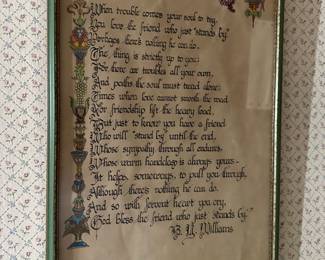 When trouble comes your soul to try,
You love the friend who just "stands by"
Perhaps there's nothing he can do,
The thing is strictly up to you;
For there are troubles all your own,
And paths the soul must tread alone;
Times when love cannot smooth the road
Nor friendship lift the heavy load,
But just to know you have a friend
Who will "stand by" until the end,
Whose sympathy through all endures,
Whose warm handclasp is always yours -
It helps, someways, to pull you through,
Although there's nothing he can do.
And so with fervent heart you cry,
God bless the friend who just stands by."
B. Y. Williams